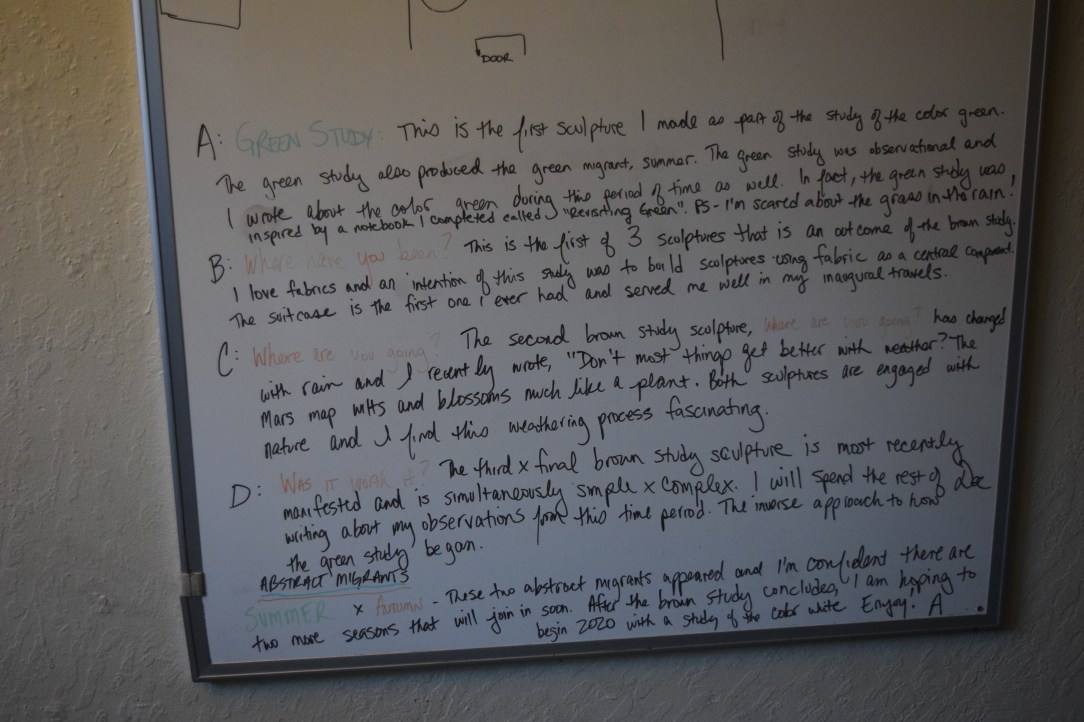 DOOR
A: GREEN STUDY: This is the first sculpture I made as part of the study of the color green.
The green study also produced the green migrant, summer. The green study was observational and
I wrote about the color green during this period of time as well. In fact, the green study was
inspired by a notebook I completed called, "Revisiting Green". PS - I'm scared about the grass in the rain!
B: Where have you been? This is the first of 3 sculptures that is an outcome of the brown study.
I love fabrics and an intention of this study was to build sculptures using fabric as a central component.
The suitcase is the first one I ever had and served me well in my inaugural travels.
C: Where are you going? The second brown study sculpture, Where are you going? has changed
with rain and I recently wrote, "Don't most things get better with weather? The
Mars map wilts and blossoms much like a plant. Both sculptures are engaged with
nature and I find this weathering process fascinating.
D: WAS IT WORTH IT? The third x final brown study sculpture is most recently
manifested and is simultaneously simple x complex. I will spend the rest of Dec
writing about my observations from this time period. The inverse approach to how
the green study began.
ABSTRACT MIGRANTS
SUMMER x AUTUMN - These two abstract migrants appeared and I'm confident there are
two more seasons that will join in soon. After the brown study concludes, I am hoping to
begin 2020 with a study of the color white Enjoy. A